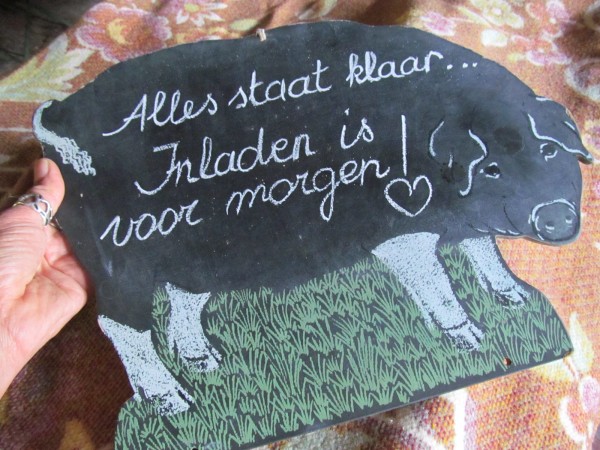 Alles staat klaar...
Inladen is
voor morgen!